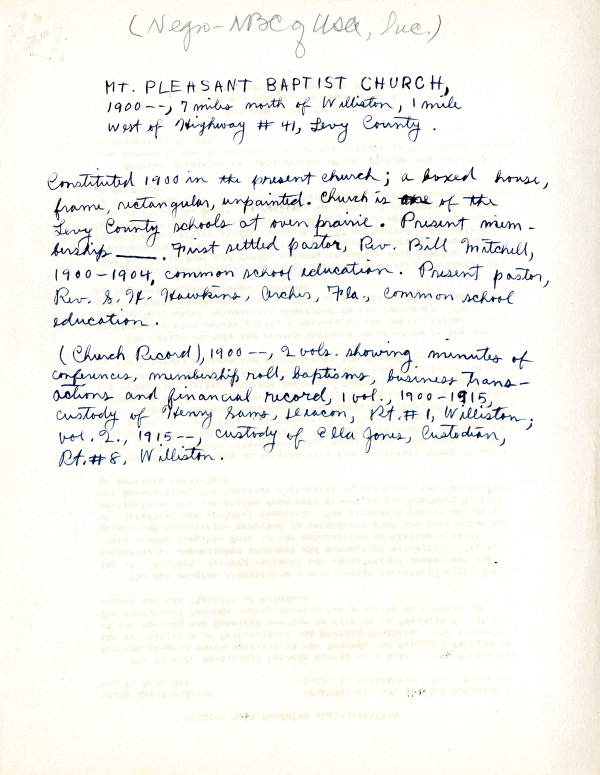 (Negro-NBC of USA, Inc.)
MT. PLEASANT BAPTIST CHURCH,
1900--, 7 miles north of Williston, 1 mile
west of Highway # 41, Levy County.
Constituted 1900 in the present church; a boxed house,
frame, rectangular, unpainted. Church is one of the
Levy County schools at oven prairie. Present mem-
bership ____. First settled pastor, Rev. Bill Mitchell,
1900-1904, common school education. Present pastor,
Rev. S. H. Hawkins, Archer, Fla., common school
education.
(Church Record), 1900--, 2 vols. showing minutes of
conferences, membership roll, baptisms, business trans-
actions and financial record, 1 vol., 1900-1915,
custody of Henry Sams, Deacon, Rt. # 1, Williston;
vol. 2., 1915--, custody of Ella Jones, Custodian,
Rt. # 8, Williston.